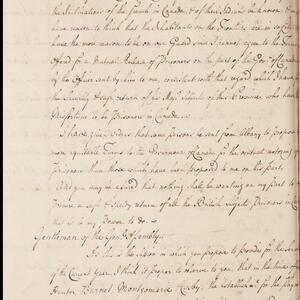 the Machinations of the French in Canada & of their Indians unknown &
have reason to think that the Inhabitants on the Frontiers
have the more reason to be on our Guard since I cannot agree to the Terms
offered for a Mutual Release of Prisoners on the part of the Gov.r of
by the Officer sent by him to me, consistent with that regard which I have
the Security & safe return of his Maj.s Subjects of this Province who have
Misfortune to be Prisoners in Canada.
I have given Orders that some person be sent from Albany to propose
more equitable Terms to the Governour of Canada for the mutual restoring
Prisoners than those which have been proposed to me on his part,
And you may be assured that nothing shall be wanting on my part to
procure a safe & speedy return of all the British Subjects Prisoners in
that is in my Power to do.
Gentlemen of the Gen.l Assembly
As this is the season in which you propose to provide for the
of the Current Year, I think it proper to observe to you, that in the times of
Hunter, Burnet, Montgomerie & Cosby, the Establishm.t for the pay